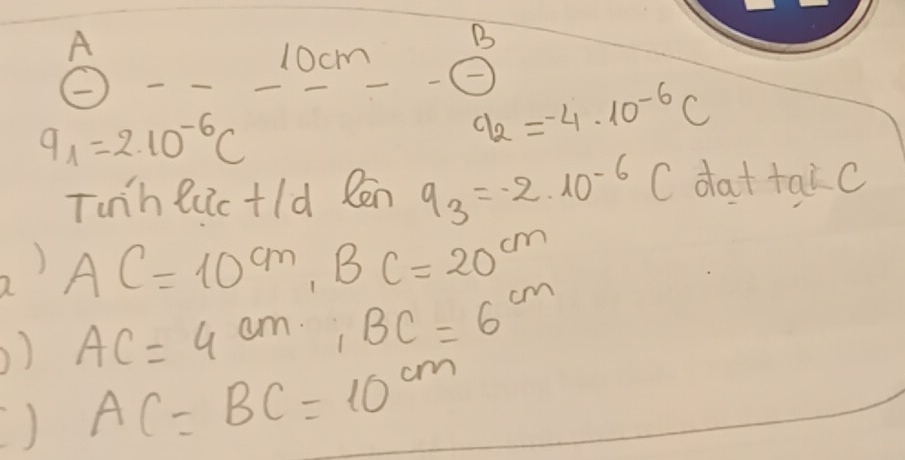 A 10cm B
⊖ - - - - - - ⊖
q₁ = 2.10⁻⁶C q₂ = -4.10⁻⁶C
Tính lực t/d lên q₃ = -2.10⁻⁶ C đạt tại C
a) AC = 10cm, BC = 20cm
b) AC = 4cm, BC = 6cm
c) AC = BC = 10cm